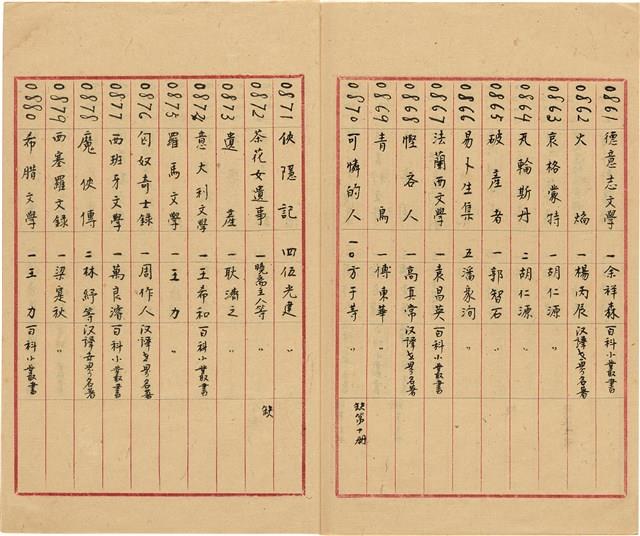 0861 德意志文學 一 余祥森 百科小叢書
0862 火焰 一 楊丙辰 汉譯世界名著
0863 哀格蒙特 一 胡仁源 〃
0864 瓦輪斯丹 二 胡仁源 〃
0865 破產者 一 郭智石 〃
0866 易卜生集 五 潘家洵 〃
0867 法蘭西文學 一 袁昌英 百科小叢書
0868 慳吝人 一 高真常 汉譯世界名著
0869 青鳥 一 傅東華 〃
0870 可憐的人 一〇 方于等 〃 缺第十册
0871 俠隱記 四 伍光建 〃
0872 茶花女遺事 一 曉齋主人等 〃 缺
0873 遺產 一 耿濟之 〃
0874 意大利文學 一 王希和 百科小叢書
0875 羅馬文學 一 王力 〃
0876 匈奴奇士錄 一 周作人 汉譯世界名著
0877 西班牙文學 一 萬良濬 百科小叢書
0878 魔俠傳 二 林紓等 汉譯世界名著
0879 西塞羅文錄 一 梁寔秋 〃
0880 希腊文學 一 王力 百科小叢書